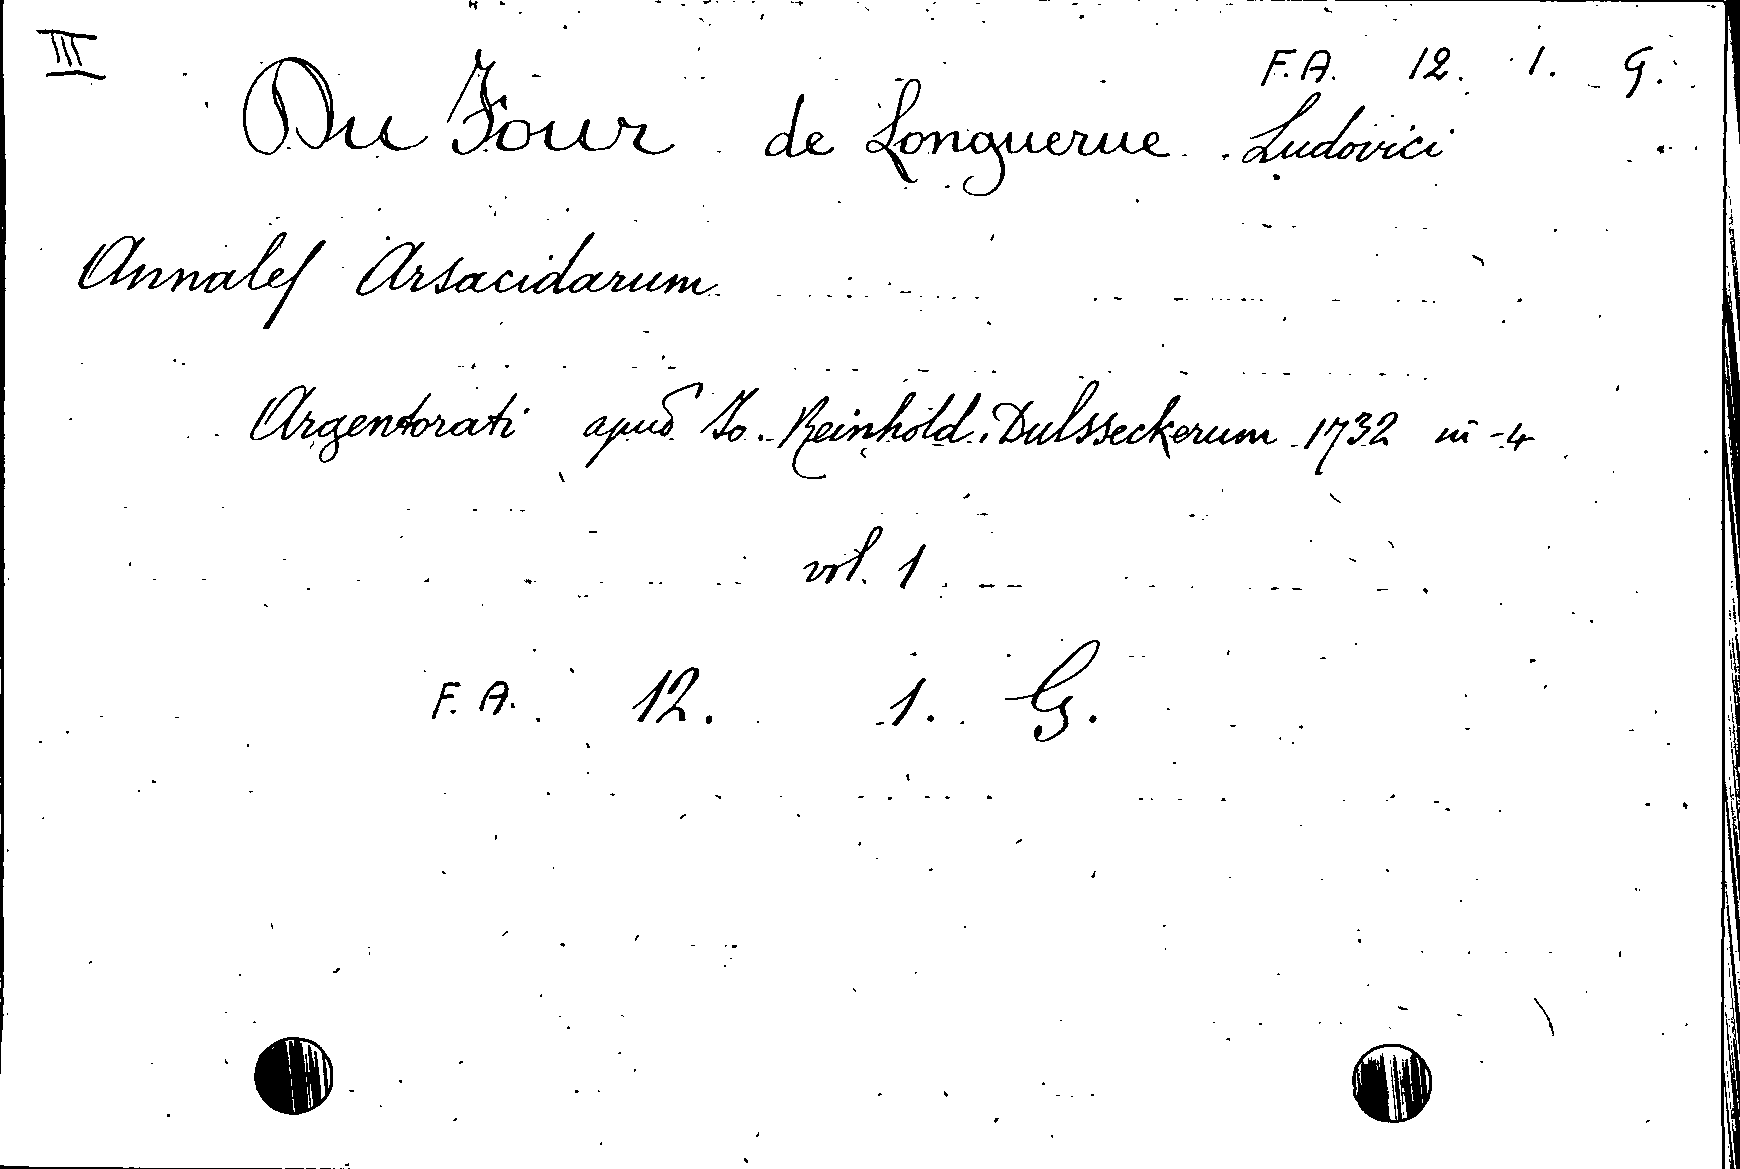 III
F.A. 12. 1. G.
Du Four de Longuerue Ludovici
Annales Arsacidarum
Argentorati apud Jo. Reinhold. Dulsseckerum 1732 in-4
vol. 1
F.A. 12. 1. G.